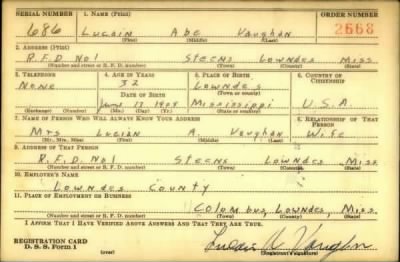 SERIAL NUMBER 1. NAME (Print) ORDER NUMBER
686 Lucain Abe Vaughan 2668
(First) (Middle) (Last)
2. ADDRESS (Print)
R.F.D No 1 Steens Lowndes Miss.
(Number and street or R. F. D. number) (Town) (County) (State)
3. TELEPHONE 4. AGE IN YEARS 5. PLACE OF BIRTH 6. COUNTRY OF CITIZENSHIP
None 32 Lowndes
DATE OF BIRTH (Town or county)
June 17 1908 Mississippi U.S.A.
(Exchange) (Number) (Mo.) (Day) (Yr.) (State or country)
7. NAME OF PERSON WHO WILL ALWAYS KNOW YOUR ADDRESS 8. RELATIONSHIP OF THAT PERSON
Mrs Lucian A. Vaughan Wife
(Mr., Mrs., Miss) (First) (Middle) (Last)
9. ADDRESS OF THAT PERSON
R.F.D. No 1 Steens Lowndes Miss
(Number and street or R. F. D. number) (Town) (County) (State)
10. EMPLOYER'S NAME
Lowndes County
11. PLACE OF EMPLOYMENT OR BUSINESS
Colombus, Lowndes, Miss
(Number and street or R. F. D. number) (Town) (County) (State)
I AFFIRM THAT I HAVE VERIFIED ABOVE ANSWERS AND THAT THEY ARE TRUE.
REGISTRATION CARD
D. S. S. Form 1 (over) Lucain A Vaughn
(Registrant's signature)